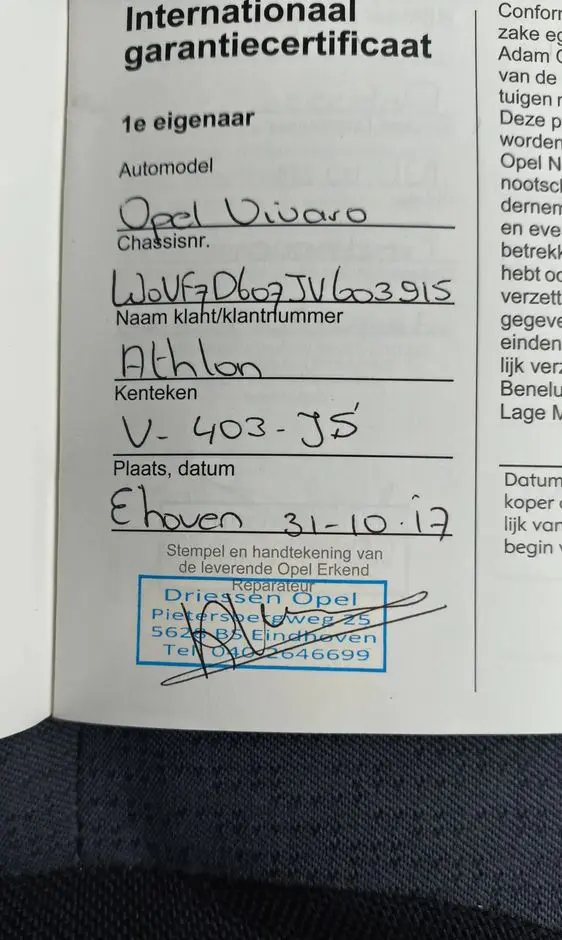 Internationaal
garantiecertificaat
1e eigenaar
Automodel
Opel Vivaro
Chassisnr.
W0VF7D607JV603915
Naam klant/klantnummer
Athlon
Kenteken
V-403-JS
Plaats, datum
Ehoven 31-10-17
Stempel en handtekening van
de leverende Opel Erkend
Reparateur
Driessen Opel
Pietersbergweg 25
5628 BS Eindhoven
Tel. 040-2646699
Conform
zake eg
Adam O
van de
tuigen
Deze p
worden
Opel N
nootsch
dernem
en eve
betrekk
hebt oo
verzett
gegeve
einden
lijk verz
Benelu
Lage M
Datum
koper
lijk van
begin